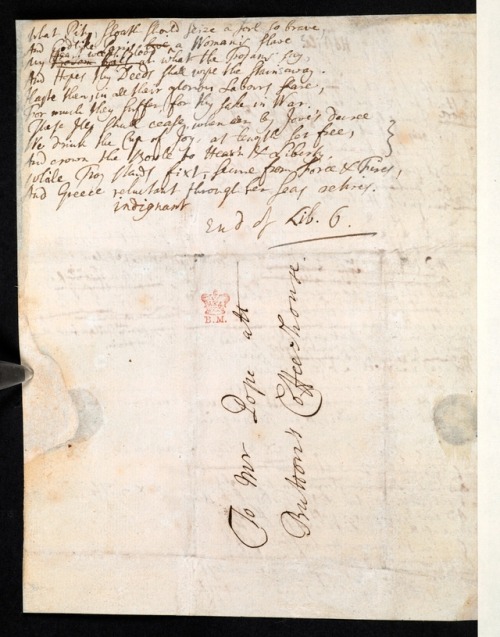 What Pity Sloath should seize a Soul so brave,
And Godlike Paris a Woman's slave
My heart weeps blood at what the Trojans say,
And Hopes thy Deeds shall wipe the Stain away.
Haste then, in all their glorious Labours share,
For much they suffer for thy sake in War.
These Ills shall cease, when e'er by Jove's decree
We drink the Cup of Joy, at length set free,
And crown the Bowle to Heav'n & Liberty.
While Troy stands fixt, secure from Force & Fires,
And Greece reluctant through her Seas retires.
indignant
End of Lib. 6.
B.M.
To Mr Pope att
Buttons Coffeehouse.